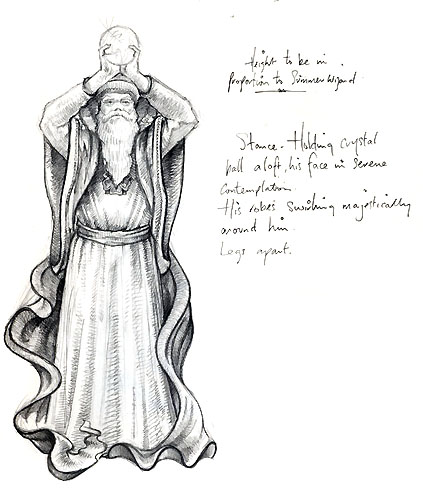 Height to be in
proportion to Summer Wizard
Stance - Holding crystal
ball aloft, his face in serene
contemplation.
His robes swirling majestically
around him.
Legs apart.